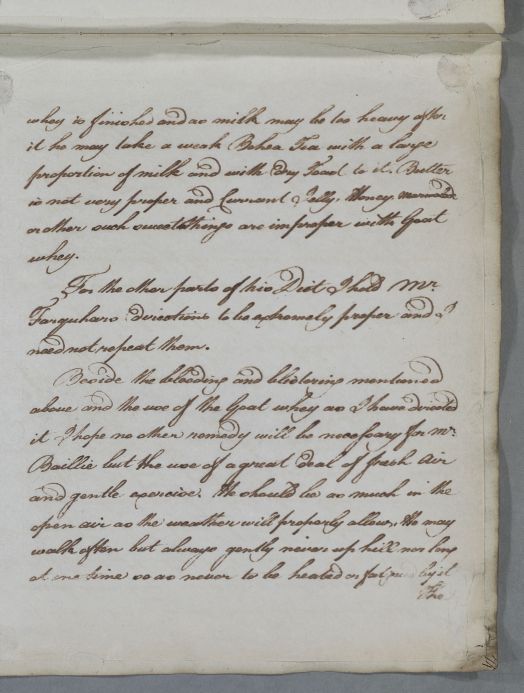 whey is finished and as milk may be too heavy after
it he may take a weak Bohea Tea with a large
proportion of milk and with dry Toast to it. Butter
is not very proper and Currant Jelly, Honey marmalade
or other such sweet things are improper with Goat
whey.
For the other parts of his Diet I hold Mr.
Farquhars directions to be extremely proper and I
need not repeat them.
Beside the bleeding and blistering mentioned
above and the use of the Goat whey as I have directed
it I hope no other remedy will be necessary for Mr.
Baillie but the use of a great deal of fresh Air
and gentle exercise. He should be as much in the
open air as the weather will properly allow, He may
walk often but always gently never up hill nor long
at one time so as never to be heated or fatigued by it
The